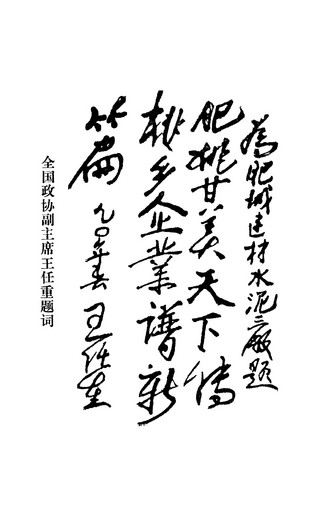 为肥城建材水泥三厂题
肥桃甘美天下传
桃乡企业谱新
篇
九〇年春 王任重
全国政协副主席王任重题词